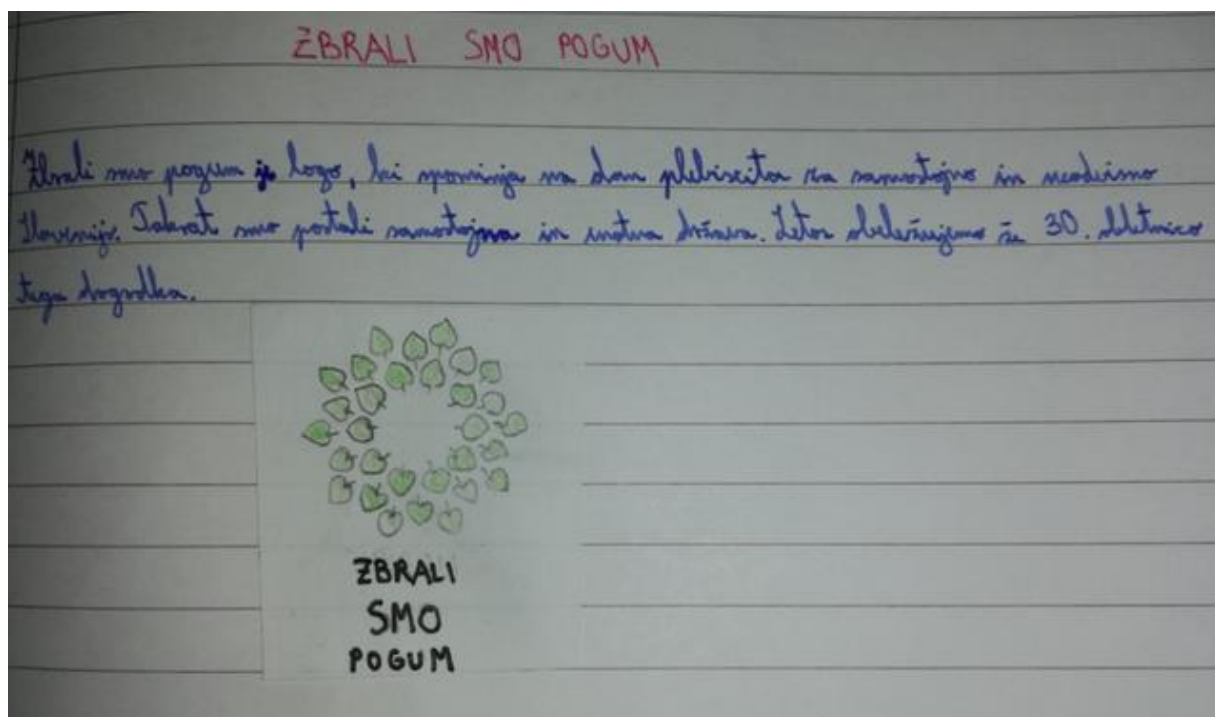 ZBRALI SMO POGUM
Zbrali smo pogum je logo, ki spominja na dan plebiscita za samostojno in neodvisno
Slovenijo. Takrat smo postali samostojna in enotna država. Letos obeležujemo že 30. obletnico
tega dogodka.
ZBRALI
SMO
POGUM